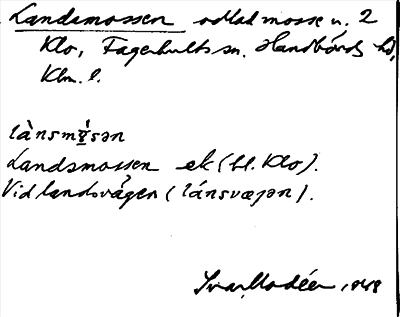 Landsmossen odlad mosse u. 2
Klo, Fagerhults sn. Handbörds hd,
Klm. l.
lànsmsən
Landsmossen ek (bl. Klo).
Vid landsvägen (lánsvæjən).
Ivar Modéer, 1948